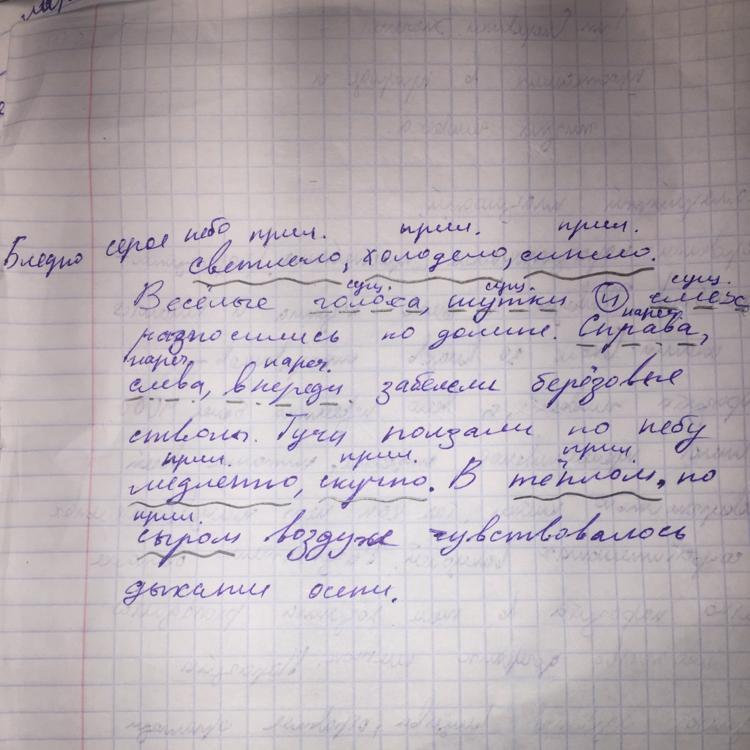 Бледно серое небо прил. прил. прил.
светлело, холодело, синело.
сущ. сущ. сущ.
Весёлые голоса, шутки и смех
нареч.
разносились по долине. Справа,
нареч. нареч.
слева, впереди забелели берёзовые
стволы. Тучи ползали по небу
прил. прил. прил.
медленно, скучно. В тёплом, но
прил.
сыром воздухе чувствовалось
дыхании осени.